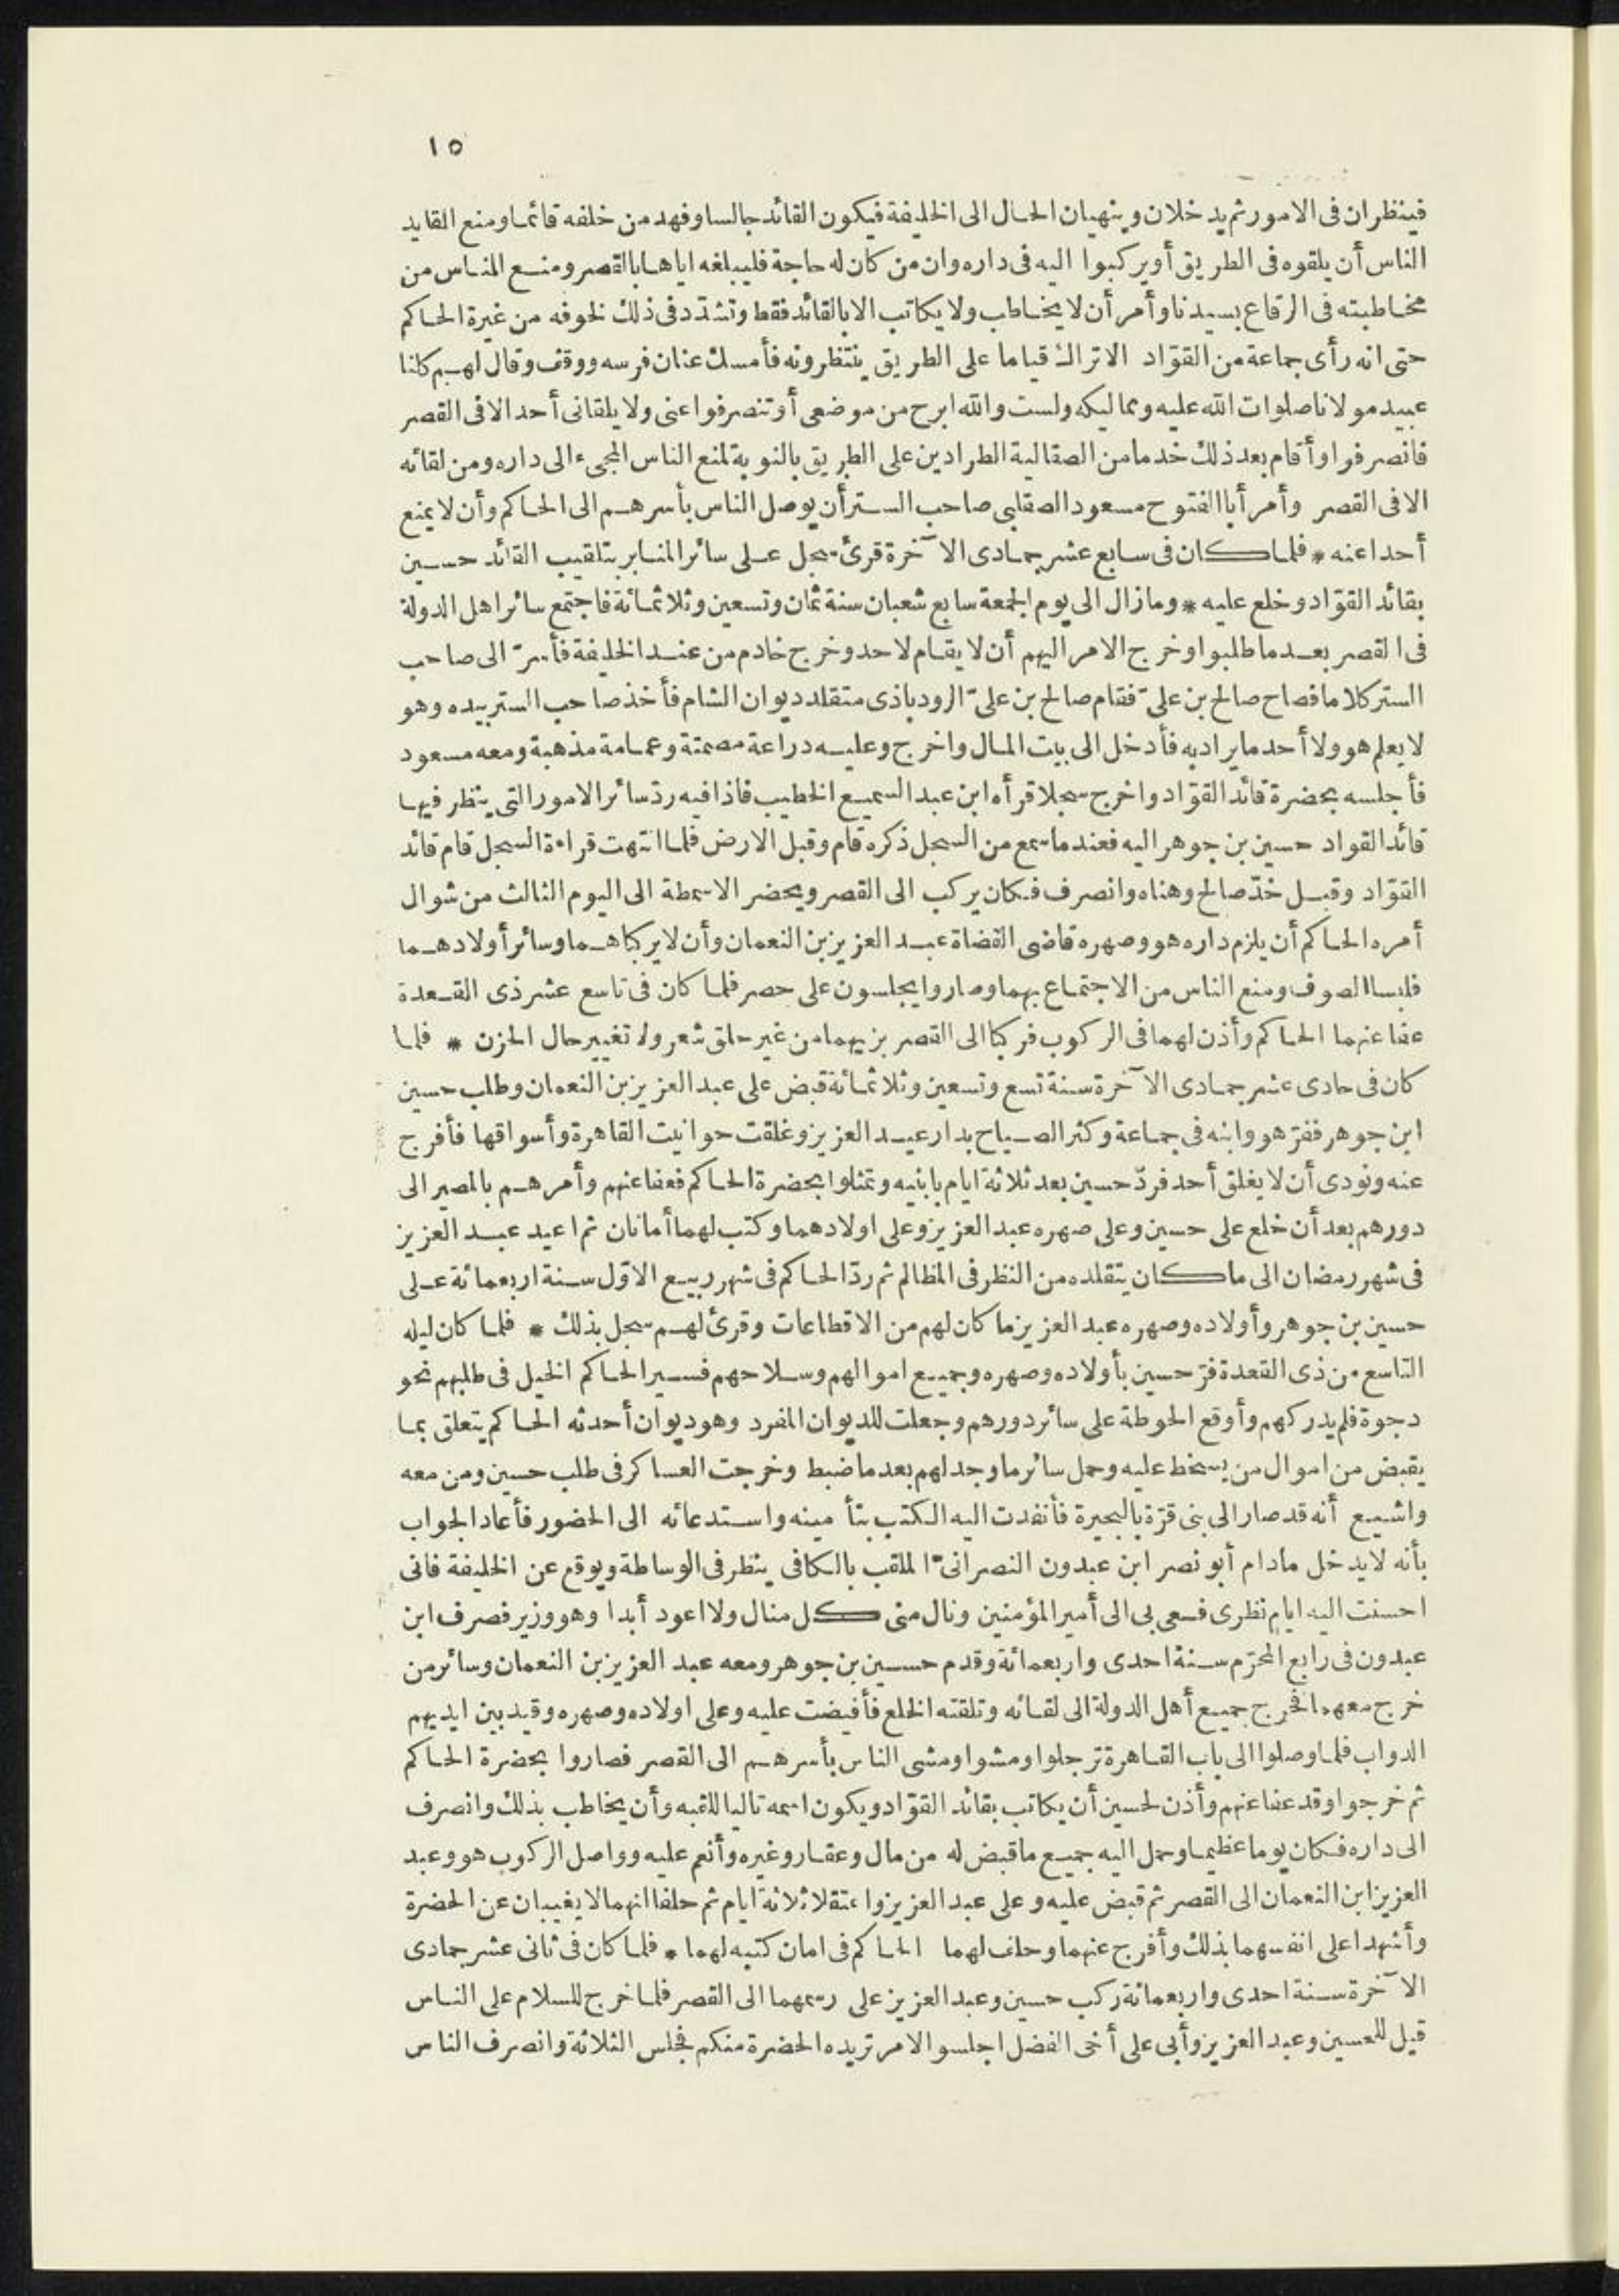 ١٥
فينظران فى الامور ثم يدخلان وينهيان الحال الى الخليفة فيكون القائد جالسا وفهد من خلفه قائما ومنع القايد
الناس أن يلقوه فى الطريق أو يركبوا اليه فى داره وان من كان له حاجة فليبلغه اياها بالقصر ومنع الناس من
مخاطبته فى الرقاع بسيدنا وأمر أن لا يخاطب ولا يكاتب الا بالقائد فقط وتشدّد فى ذلك لخوفه من غيرة الحاكم
حتى انه رأى جماعة من القوّاد الاتراك قياما على الطريق ينتظرونه فأمسك عنان فرسه ووقف وقال لهم كلنا
عبيد مولانا صلوات الله عليه ومماليكه ولست والله ابرح من موضعى أو تنصرفوا عنى ولا يلقانى أحد الا فى القصر
فانصرفوا وأقام بعد ذلك خدما من الصقالبة الطرادين على الطريق بالنوبة لمنع الناس المجىء الى داره ومن لقائه
الا فى القصر وأمر أبا الفتوح مسعود الصقلبى صاحب الستر أن يوصل الناس بأسرهم الى الحاكم وأن لا يمنع
أحدا عنه * فلما كان فى سابع عشر جمادى الآخرة قرئ سجل على سائر المنابر بتلقيب القائد حسين
بقائد القوّاد وخلع عليه * وما زال الى يوم الجمعة سابع شعبان سنة ثمان وتسعين وثلاثمائة فاجتمع سائر اهل الدولة
فى القصر بعد ما طلبوا وخرج الامر اليهم أن لا يقام لاحد وخرج خادم من عند الخليفة فأسرّ الى صاحب
الستر كلاما فصاح صالح بن علىّ فقام صالح بن علىّ الرودباذى متقلد ديوان الشام فأخذ صاحب الستر بيده وهو
لا يعلم هو ولا أحد ما يراد به فأدخل الى بيت المال واخرج وعليه دراعة مصمتة وعمامة مذهبة ومعه مسعود
فأجلسه بحضرة قائد القوّاد واخرج سجلا قرأه ابن عبد السميع الخطيب فاذا فيه ردّ سائر الامور التى ينظر فيها
قائد القواد حسين بن جوهر اليه فعند ما سمع من السجل ذكره قام وقبل الارض فلما انتهت قراءة السجل قام قائد
القوّاد وقبل خدّ صالح وهناه وانصرف فكان يركب الى القصر ويحضر الاسمطة الى اليوم الثالث من شوال
أمره الحاكم أن يلزم داره هو وصهره قاضى القضاة عبد العزيز بن النعمان وأن لا يركبا هما وسائر أولادهما
فلبسا الصوف ومنع الناس من الاجتماع بهما وصاروا يجلسون على حصر فلما كان فى تاسع عشر ذى القعدة
عفا عنهما الحاكم وأذن لهما فى الركوب فركبا الى القصر بزيهما من غير حلق شعر ولا تغيير حال الحزن * فلما
كان فى حادى عشر جمادى الآخرة سنة تسع وتسعين وثلاثمائة قبض على عبد العزيز بن النعمان وطلب حسين
ابن جوهر ففرّ هو وابنه فى جماعة وكثر الصياح بدار عبد العزيز وغلقت حوانيت القاهرة وأسواقها فأفرج
عنه ونودى أن لا يغلق أحد فردّ حسين بعد ثلاثة ايام بابنيه وتمثلوا بحضرة الحاكم فعفا عنهم وأمرهم بالمصير الى
دورهم بعد أن خلع على حسين وعلى صهره عبد العزيز وعلى اولادهما وكتب لهما أمانان ثم اعيد عبد العزيز
فى شهر رمضان الى ما كان يتقلده من النظر فى المظالم ثم ردّ الحاكم فى شهر ربيع الاوّل سنة اربعمائة على
حسين بن جوهر وأولاده وصهره عبد العزيز ما كان لهم من الاقطاعات وقرئ لهم سجل بذلك * فلما كان ليله
التاسع من ذى القعدة فرّ حسين بأولاده وصهره وجميع اموالهم وسلاحهم فسير الحاكم الخيل فى طلبهم نحو
دجوة فلم يدركهم وأوقع الحوطة على سائر دورهم وجعلت للديوان المفرد وهو ديوان أحدثه الحاكم يتعلق بما
يقبض من اموال من يسخط عليه وحمل سائر ما وجد لهم بعد ما ضبط وخرجت العساكر فى طلب حسين ومن معه
واشيع أنه قد صار الى بنى قرّة بالبحيرة فأنفدت اليه الكتب بتأمينه واستدعائه الى الحضور فأعاد الجواب
بأنه لا يدخل ما دام أبو نصر ابن عبدون النصرانىّ الملقب بالكافى ينظر فى الوساطة ويوقع عن الخليفة فانى
احسنت اليه ايام نظرى فسعى بى الى أمير المؤمنين ونال منى كل منال ولا اعود أبدا وهو وزير فصرف ابن
عبدون فى رابع المحرّم سنة احدى واربعمائة وقدم حسين بن جوهر ومعه عبد العزيز بن النعمان وسائر من
خرج معهما فخرج جميع أهل الدولة الى لقائه وتلقته الخلع فأفيضت عليه وعلى اولاده وصهره وقيد بين ايديهم
الدواب فلما وصلوا الى باب القاهرة ترجلوا ومشوا ومشى الناس بأسرهم الى القصر فصاروا بحضرة الحاكم
ثم خرجوا وقد عفا عنهم وأذن لحسين أن يكاتب بقائد القوّاد ويكون اسمه تاليا للقبه وأن يخاطب بذلك وانصرف
الى داره فكان يوما عظيما وحمل اليه جميع ما قبض له من مال وعقار وغيره وأنعم عليه وواصل الركوب هو وعبد
العزيز ابن النعمان الى القصر ثم قبض عليه وعلى عبد العزيز واعتقلا ثلاثة ايام ثم حلفا انهما لا يغيبان عن الحضرة
وأشهدا على انفسهما بذلك وأفرج عنهما وحلف لهما الحاكم فى امان كتبه لهما * فلما كان فى ثانى عشر جمادى
الآخرة سنة احدى واربعمائة ركب حسين وعبد العزيز على رسمهما الى القصر فلما خرج للسلام على الناس
قيل للحسين وعبد العزيز وأبى على أخى الفضل اجلسوا لامر تريده الحضرة منكم فجلس الثلاثة وانصرف الناس